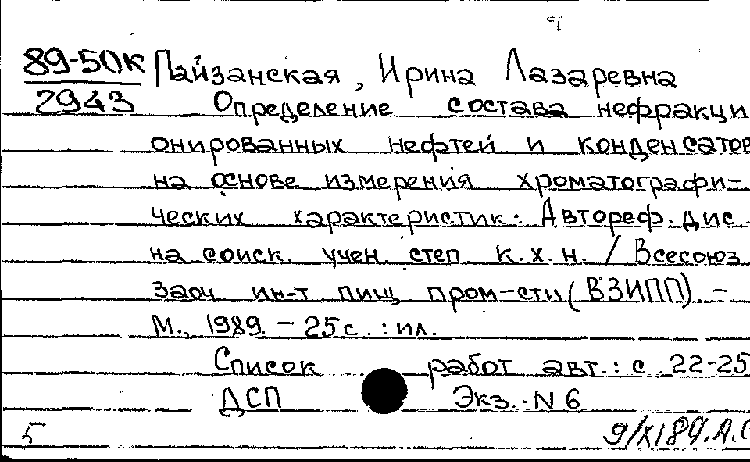 89-50К
2943
Пайзанская, Ирина Лазаревна
Определение состава нефракци
онированных нефтей и конденсатов
на основе измерения хроматографи-
ческих характеристик: Автореф. дис.
на соиск. учен. степ к.х.н. / Всесоюз
заоч ин-т пищ пром-сти (ВЗИПП). -
М., 1989. - 25с. : ил.
Список работ авт.: с 22-25
ДСП Экз. N 6
5 9/XI89.